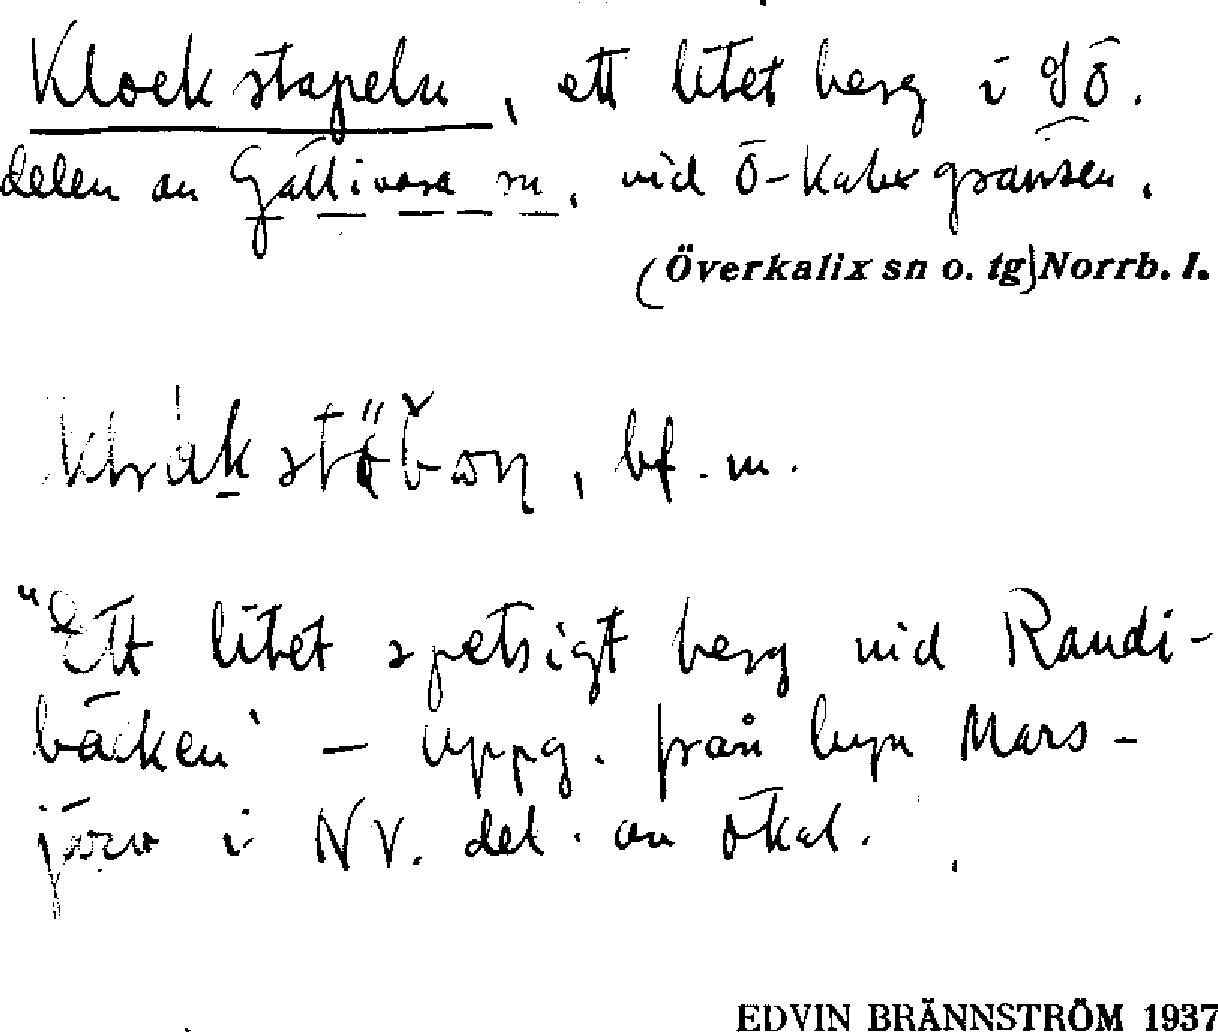 Klockstapeln, ett litet berg i SÖ.
delen av Gällivare sn, vid Ö-Kalix gränsen.
(Överkalix sn o. tg) Norrb. l.
bf. m.
"Ett litet spetsigt berg vid Raudi-
bäcken" – Uppg. från byn Mars-
järv i NV. del. av Ökal.
EDVIN BRÄNNSTRÖM 1937